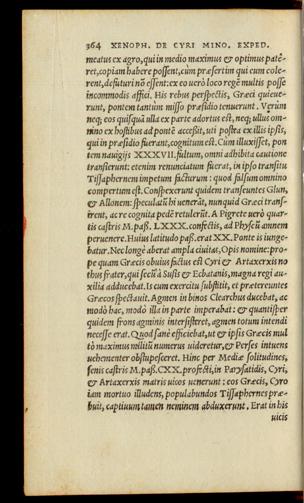 364 XENOPH. DE CYRI MINO. EXPED.
meatus ex agro, qui in medio maximus & optimus patê-
ret, copiam habere possent, cùm præsertim qui eum cole-
rent, defuturi nõ essent: ex eo verò loco regẽ multis posse
incommodis affici. His rebus perspectis, Græci quieue-
runt, pontem tantùm misso præsidio tenuerunt. Verùm
neq; eos quisquã ulla ex parte adortus est, neq; ullus om-
nino ex hostibus ad pontẽ accessit, uti postea ex illis ipsis,
qui in præsidio fuerant, cognitum est. Cùm illuxisset, pon
tem nauigijs XXXVII. fultum, omni adhibita cautione
transierunt: etenim renunciatum fuerat, in ipso transitu
Tissaphernem impetum facturum: quod falsum omnino
compertum est. Conspexerunt quidem transeuntes Glun,
& Allonem: speculatũ hi uenerãt, nunquid Græci transi-
rent, ac re cognita pedẽ retulerũt. A Pigrete uerò quar-
tis castris M. pass. LXXX. confectis, ad Physcũ amnem
peruenere. Huius latitudo pass. erat XX. Ponte is iunge-
batur. Nec longè aberat ampla ciuitas, Opis nomine: pro-
pe quam Græcis obuius factus est Cyri & Artaxerxis no
thus frater, qui secũ à Susis & Ecbatanis, magna regi au-
xilia adducebat. Is cum exercitu substitit, et prætereuntes
Græcos spectauit. Agmen in binos Clearchus ducebat, ac
modò hac, modò illa in parte imperabat: & quantisper
quidem frons agminis intersisteret, agmen totum intendi
necesse erat. Quod sanè efficiebat, ut & ipsis Græcis mul
tò maximus militũ numerus uideretur, & Perses intuens
uehementer obstupesceret. Hinc per Mediæ solitudines,
senis castris M. pass. CXX. profecti, in Parysatidis, Cyri,
& Artaxerxis matris uicos uenerunt: eos Græcis, Cyro
iam mortuo illudens, populabundos Tissaphernes præ-
buit, captiuum tamen neminem abduxerunt. Erat in his
uicis